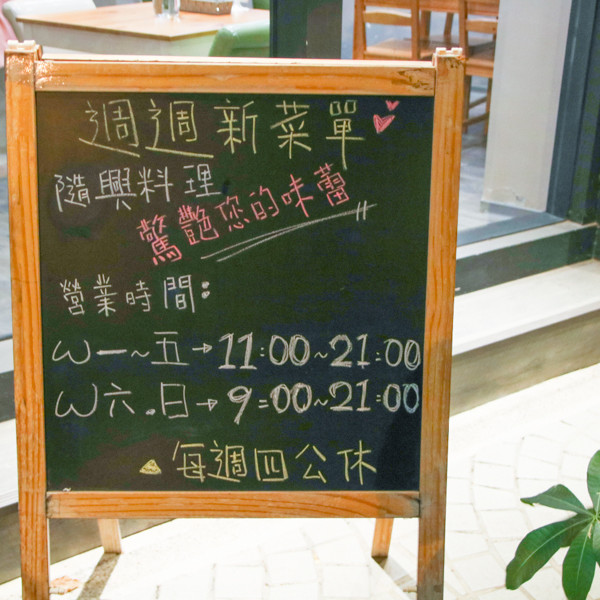 週週新菜單
隨興料理
驚艷您的味蕾
營業時間:
W一~五→11:00~21:00
W六.日→9:00~21:00
每週四公休